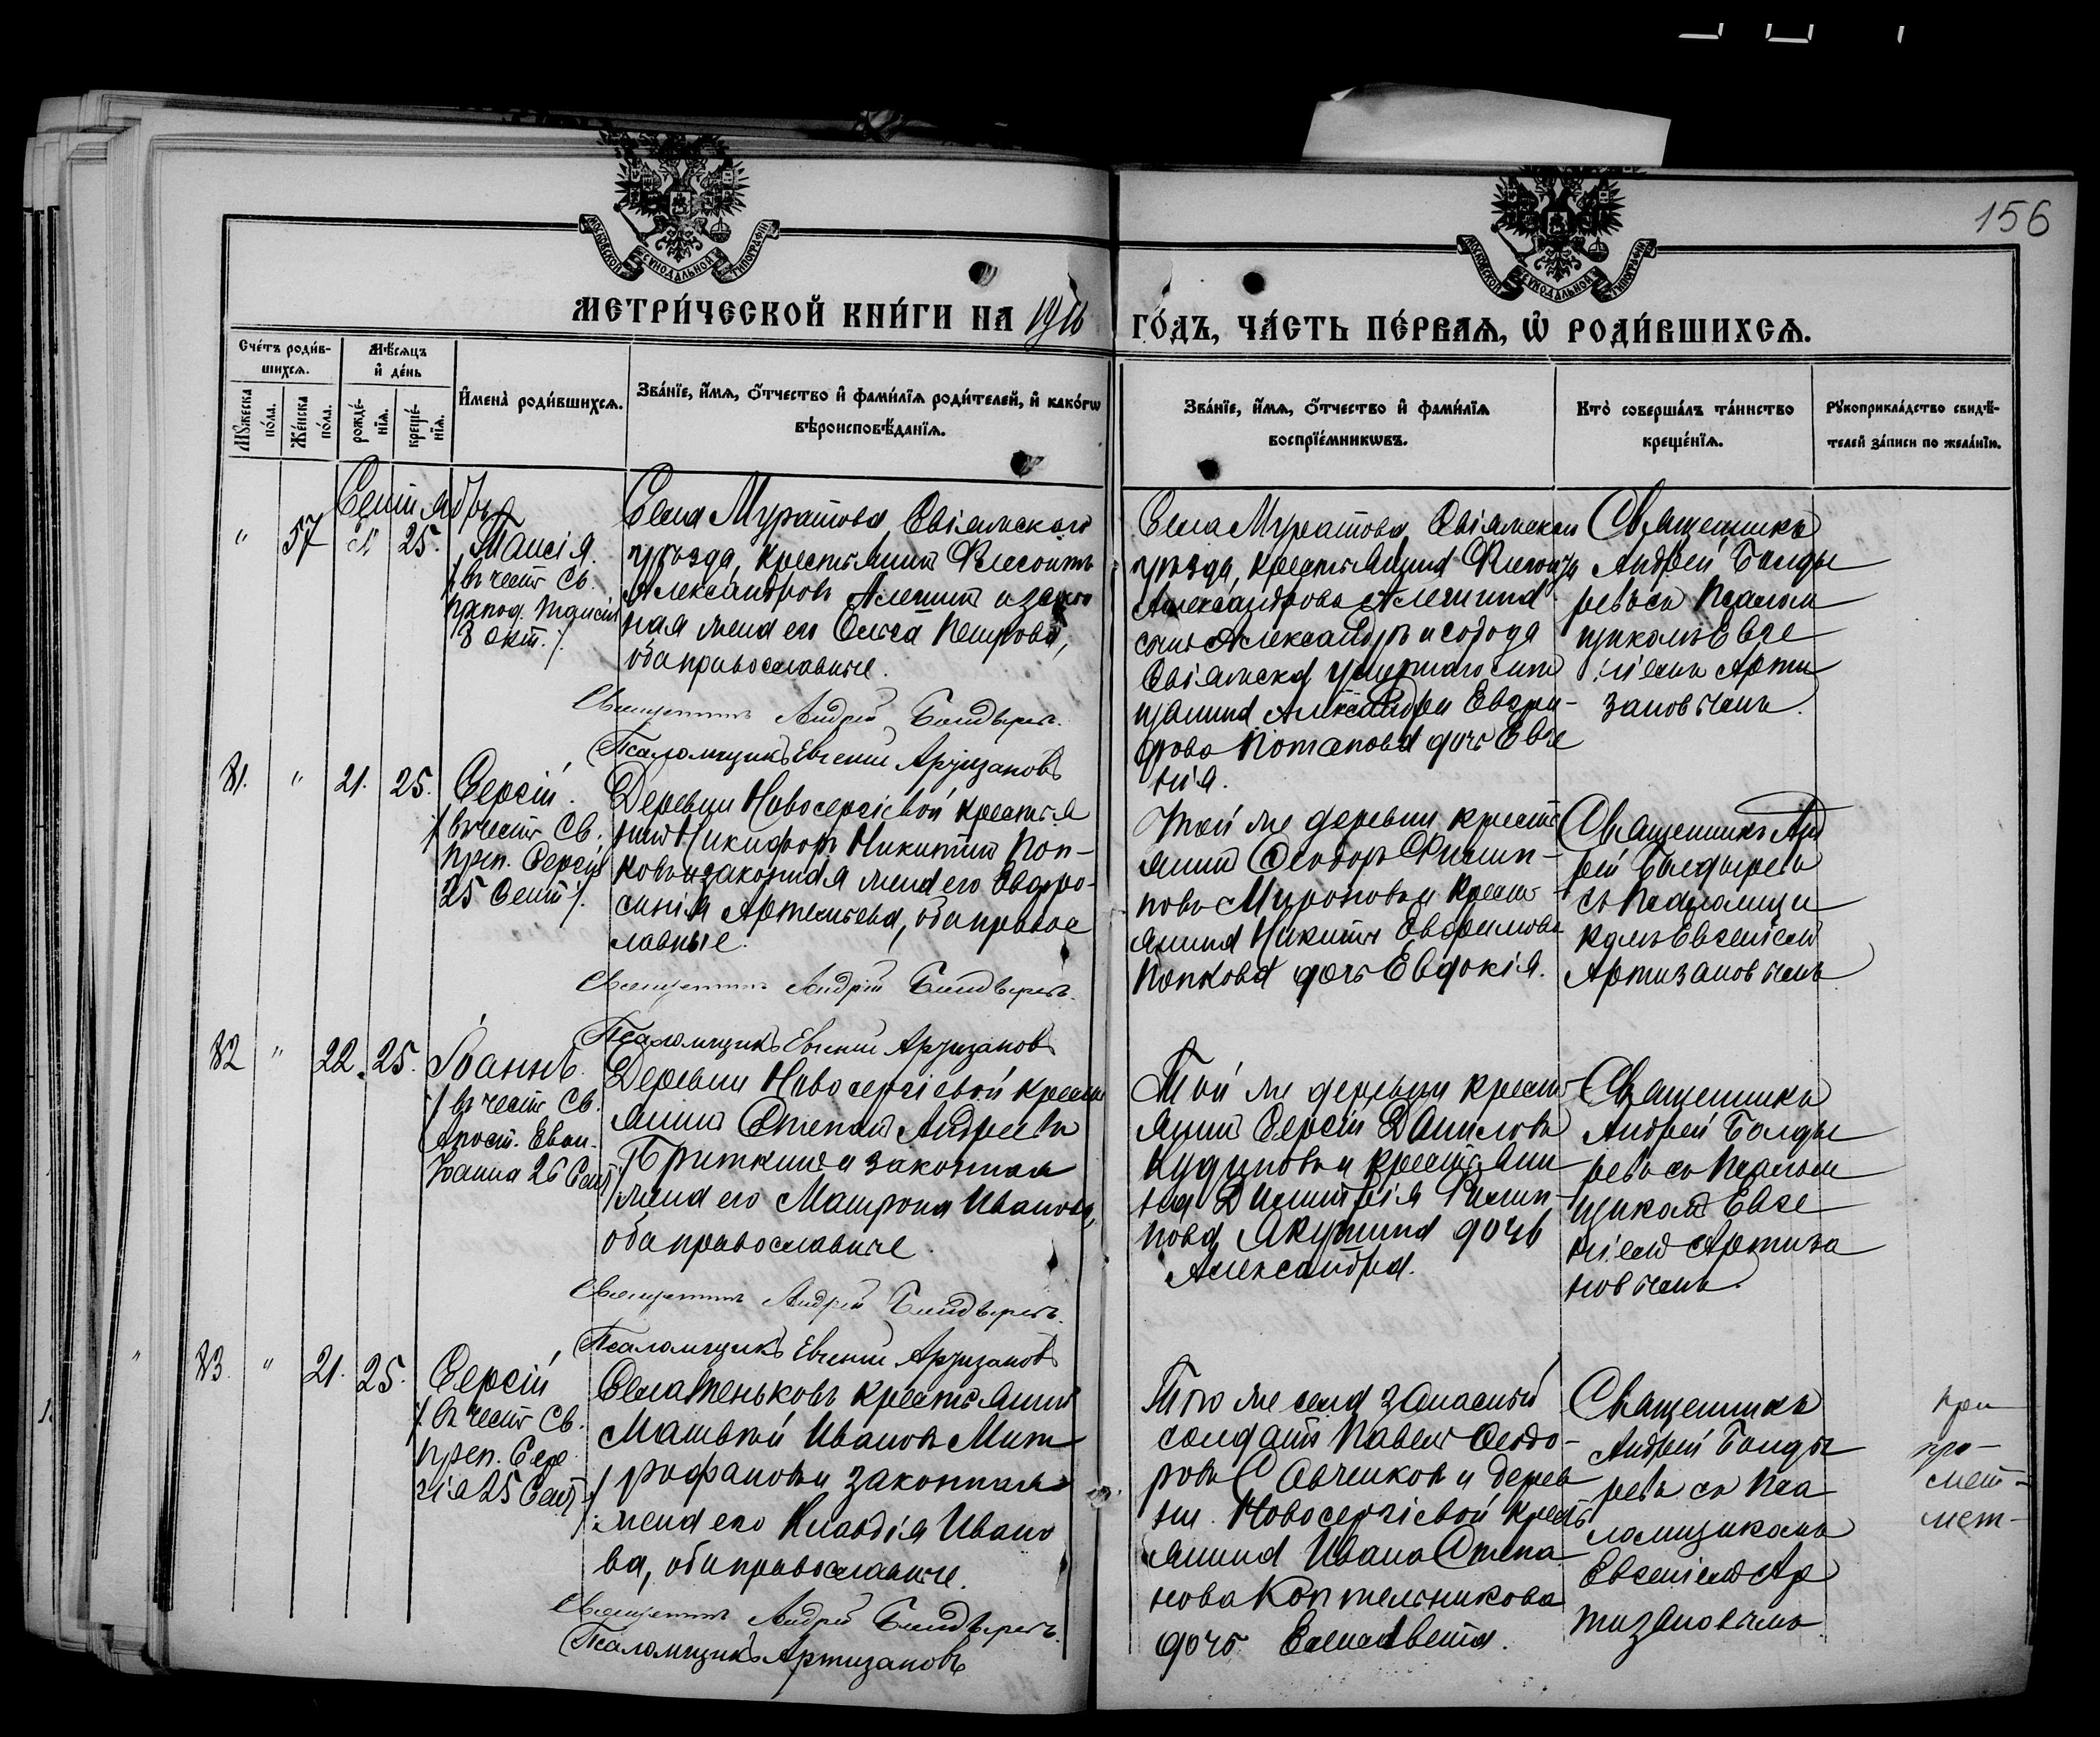 156
МОСКОВСКОЙ СУНОДАЛЬНОЙ ТИПОГРАФІИ
МОСКОВСКОЙ СУНОДАЛЬНОЙ ТИПОГРАФІИ
МЕТРИ́ЧЕСКОЙ КНИ́ГИ НА 1916 ГО́ДЪ, ЧА́СТЬ ПЕ́РВАѦ, Ѡ҆ РОДИ́ВШИХСѦ.
Сче́тъ роди́в-
шихсѧ.
Мѣ́сѧцъ
и҆ де́нь
Мꙋ́жеска
по́ла.
Же́нска
по́ла.
рожде́-
нїѧ.
креще́-
нїѧ.
И҆мена̀ роди́вшихсѧ.
Зва́нїе, и҆́мѧ, ѻ҆́тчество и҆ фами́лїѧ роди́телей, и҆ како́гѡ
вѣроисповѣ́данїѧ.
Зва́нїе, и҆́мѧ, ѻ҆́тчество и҆ фами́лїѧ
воспрїе́мникѡвъ.
Кто̀ соверша́лъ та́инство
креще́нїѧ.
Рꙋкоприкла́дство свидѣ́-
телей за́писи по жела́нїю.
Сентябрь
" 57 25.
Таисія
/въ честь Св.
препод. Таисіи
8 окт./.
Села Муратова Свіяжскаго
уѣзда, крестьянинъ Филиппъ
Александровъ Алешинъ и закон
ная жена его Ольга Петрова,
оба православные.
Священникъ Андрей Болдыревъ.
Псаломщикъ Евгеній Артизановъ
Села Муратова Свіяжскаго
уѣзда, крестьянина Филиппа
Александрова Алешина
сынъ Александръ и города
Свіяжска умершаго мѣ
щанина Александра Евгра-
фова Потапова дочь Евге
нія.
Священникъ
Андрей Болды
ревъ съ псалом
щикомъ Евге
ніемъ Арти
зановымъ.
81. " 21. 25.
Сергій.
/въ честь Св.
преп. Сергія
25 Сент/.
Деревни Новосергіевой крестья
нинъ Никифоръ Никитинъ Поп-
ковъ и законная жена его Евфро-
синія Артемьева, оба правос
лавные.
Священникъ Андрей Болдыревъ.
Псаломщикъ Евгеній Артизановъ
Той же деревни кресть
янинъ Ѳеодоръ Филип-
повъ Мироновъ и кресть
янина Никиты Евфимова
Попкова дочь Евдокія.
Священникъ Анд
рей Болдыревъ
съ псаломщи
комъ Евгеніемъ
Артизановымъ
82 " 22. 25.
Іоаннъ.
/въ честь Св.
Апост. Еван.
Іоанна 26 Сент/
Деревни Новосергіевой кресть
янинъ Степанъ Андреевъ
Бриткинъ и законная
жена его Матрона Иванова,
оба православные.
Священникъ Андрей Болдыревъ.
Псаломщикъ Евгеній Артизановъ
Той же деревни кресть
янинъ Сергій Даниловъ
и кресть яни
на Димитрія Филип-
пова Якушина дочь
Александра.
Священникъ
Андрей Болды
ревъ съ псалом
щикомъ Евге
ніемъ Артиза
новымъ.
83. " 21. 25.
Сергій
/въ честь Св.
преп. Сер
гія 25 Сент/
Села Теньковъ крестьянинъ
Матвѣй Ивановъ Мит
рофановъ и законная
жена его Клавдія Ивано
ва, оба православные.
Священникъ Андрей Болдыревъ.
Псаломщикъ Артизановъ
Того же села запасный
солдатъ Павелъ Ѳеодо-
ровъ Овчинковъ и дерев
ни Новосергіевой кресть
янина Ивана Степа
нова Коптельникова
дочь Елизавета.
Священникъ
Андрей Болды
ревъ съ пса
ломщикомъ
Евгеніемъ Ар
тизановымъ